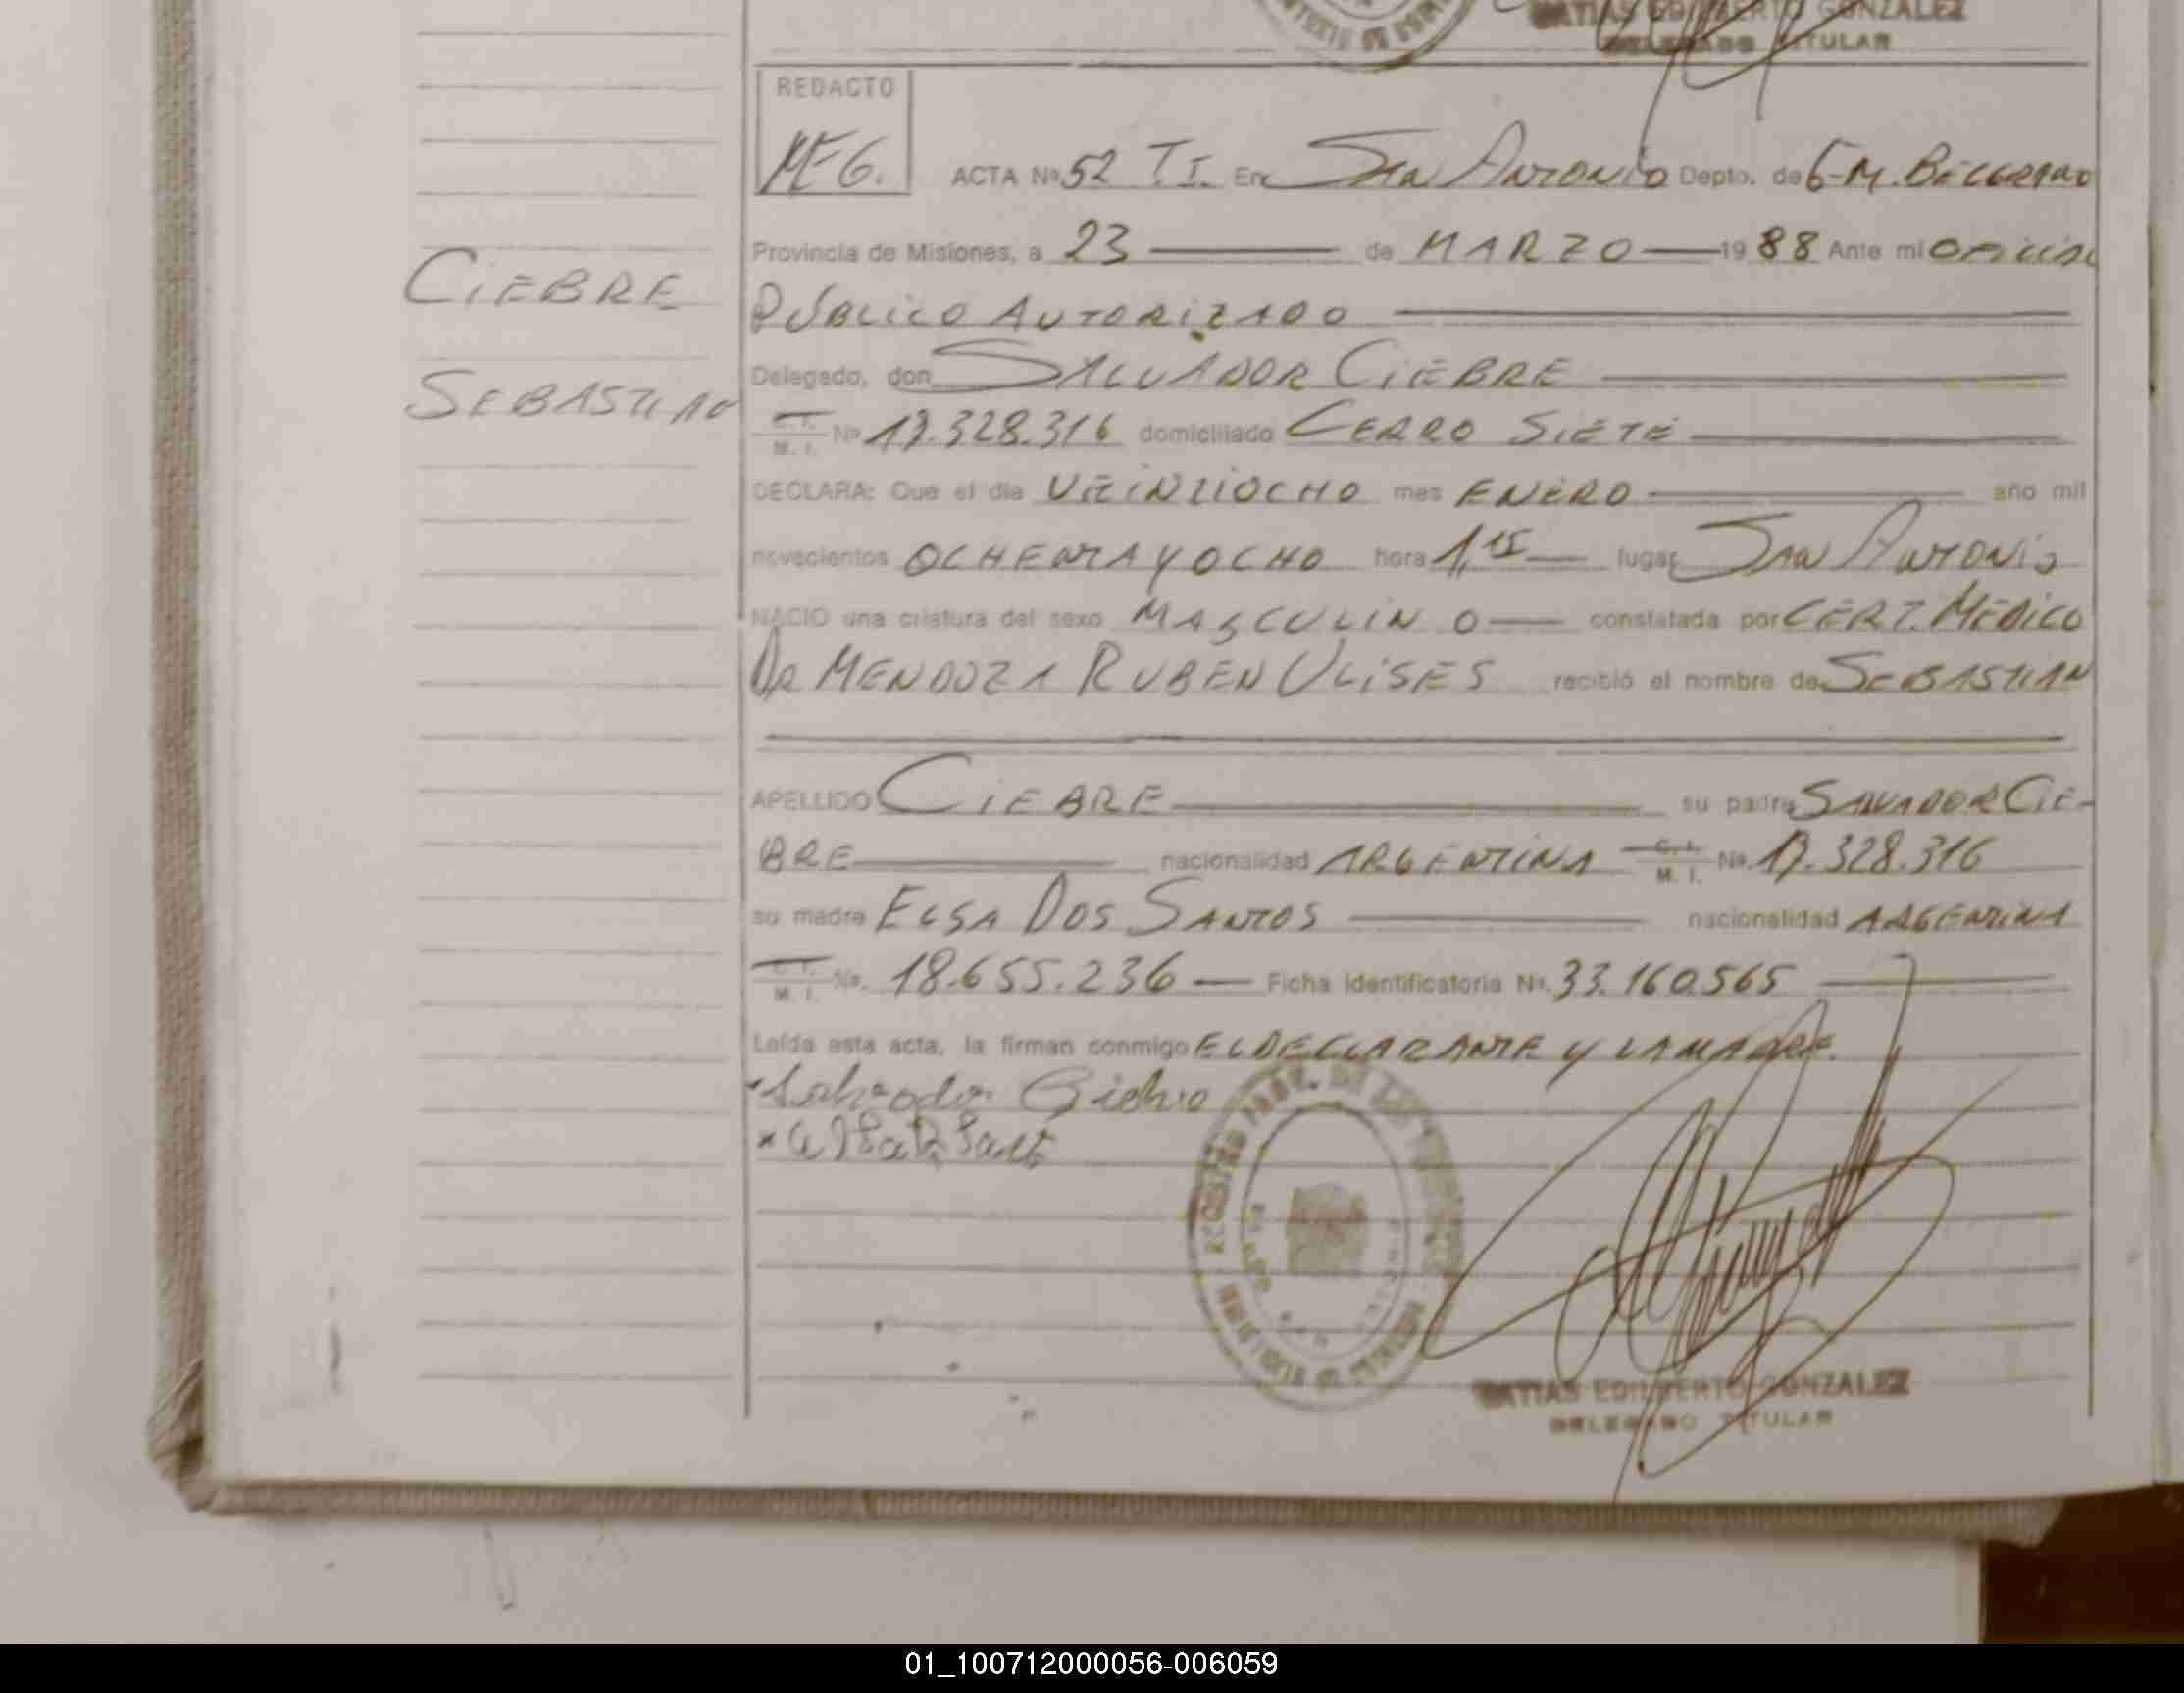 MATIAS EDILBERTO GONZALEZ
DELEGADO TITULAR
REDACTO
MEG.
ACTA No 52 T.I. En San Antonio Depto. de G-M. Belgrano
Provincia de Misiones, a 23 de MARZO 1988 Ante mi Oficial
Público Autorizado
Delegado, don SALVADOR CIEBRE
C. I. M. I. No 17.328.316 domiciliado CERRO SIETE
DECLARA: Que el día VEINTIOCHO mes ENERO año mil
novecientos OCHENTA Y OCHO hora 1,15 lugar San Antonio
NACIO una criatura del sexo MASCULINO constatada por CERT. MEDICO
DR MENDOZA RUBEN ULISES recibió el nombre de SEBASTIAN
APELLIDO CIEBRE su padre SALVADOR CIE-
BRE nacionalidad ARGENTINA C. I. M. I. No. 17.328.316
su madre ELSA DOS SANTOS nacionalidad ARGENTINA
C. I. M. I. No. 18.655.236 Ficha Identificatoria No. 33.160.565
Leída esta acta, la firman conmigo EL DECLARANTE Y LA MADRE.
CIEBRE
SEBASTIAN
MATIAS EDILBERTO GONZALEZ
DELEGADO TITULAR
01_100712000056-006059